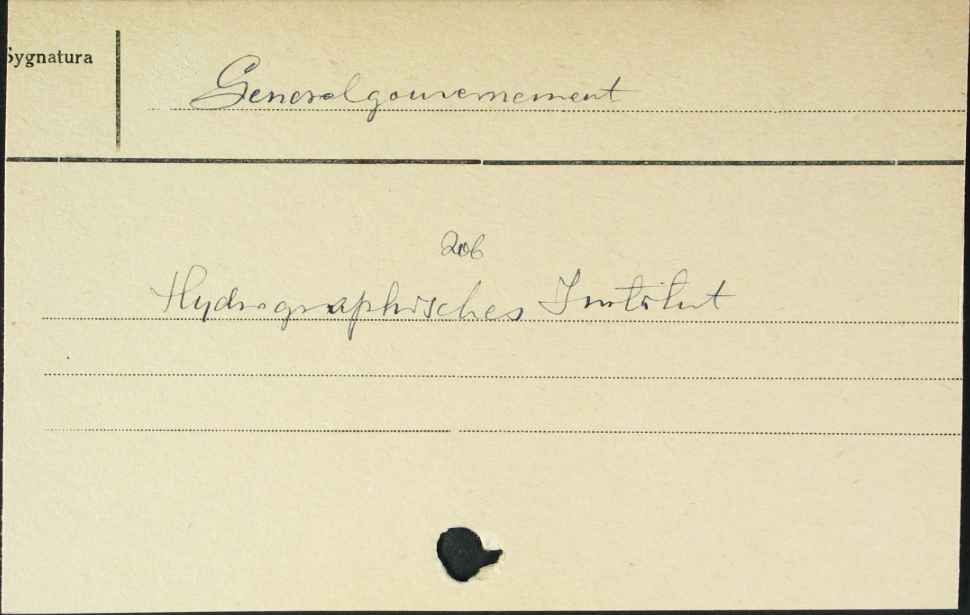 Sygnatura
Generalgouvernement
206
Hydrographisches Institut